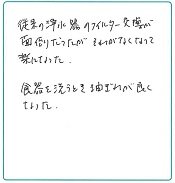 従来の浄水器のフィルター交換が
面倒だったが それがなくなって
楽になった.
食器を洗うとき 油ぎれが良く
なった.